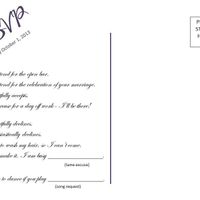 SVP
October 1, 2013
tend for the open bar.
tend for the celebration of your marriage.
fully accepts.
cuse for a day off work - I'll be there!
tfully declines.
siastically declines.
to wash my hair, so I can't come.
make it. I am busy
(lame excuse)
to dance if you play
(song request)
P
ST